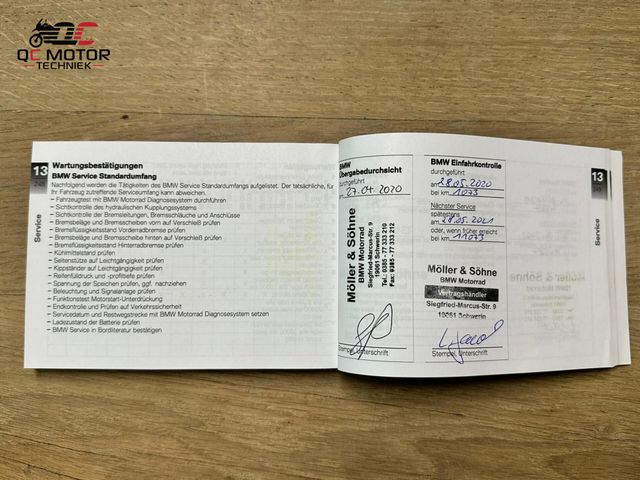 QC MOTOR
TECHNIEK
13
Service
Wartungsbestätigungen
BMW Service Standardumfang
Nachfolgend werden die Tätigkeiten des BMW Service Standardumfangs aufgelistet. Der tatsächliche, für
Ihr Fahrzeug zutreffende Serviceumfang kann abweichen.
– Fahrzeugtest mit BMW Motorrad Diagnosesystem durchführen
– Sichtkontrolle des hydraulischen Kupplungssystems
– Sichtkontrolle der Bremsleitungen, Bremsschläuche und Anschlüsse
– Bremsbeläge und Bremsscheiben vorn auf Verschleiß prüfen
– Bremsflüssigkeitsstand Vorderradbremse prüfen
– Bremsbeläge und Bremsscheibe hinten auf Verschleiß prüfen
– Bremsflüssigkeitsstand Hinterradbremse prüfen
– Kühlmittelstand prüfen
– Seitenstütze auf Leichtgängigkeit prüfen
– Kippständer auf Leichtgängigkeit prüfen
– Reifenfülldruck und -profiltiefe prüfen
– Spannung der Speichen prüfen, ggf. nachziehen
– Beleuchtung und Signalanlage prüfen
– Funktionstest Motorstart-Unterdrückung
– Endkontrolle und Prüfen auf Verkehrssicherheit
– Servicedatum und Restwegstrecke mit BMW Motorrad Diagnosesystem setzen
– Ladezustand der Batterie prüfen
– BMW Service in Bordliteratur bestätigen
BMW
Übergabedurchsicht
durchgeführt
am 27.04.2020
Möller & Söhne
BMW Motorrad
Siegfried-Marcus-Str. 9
19061 Schwerin
Tel.: 0385 - 77 333 210
Fax: 0385 - 77 333 212
Stempel, Unterschrift
BMW Einfahrkontrolle
durchgeführt
am 28.05.2020
bei km 1073
Nächster Service
spätestens
am 28.05.2021
oder, wenn früher erreicht
bei km 11073
Möller & Söhne
BMW Motorrad
Vertragshändler
Siegfried-Marcus-Str. 9
19061 Schwerin
Stempel, Unterschrift
13
Service